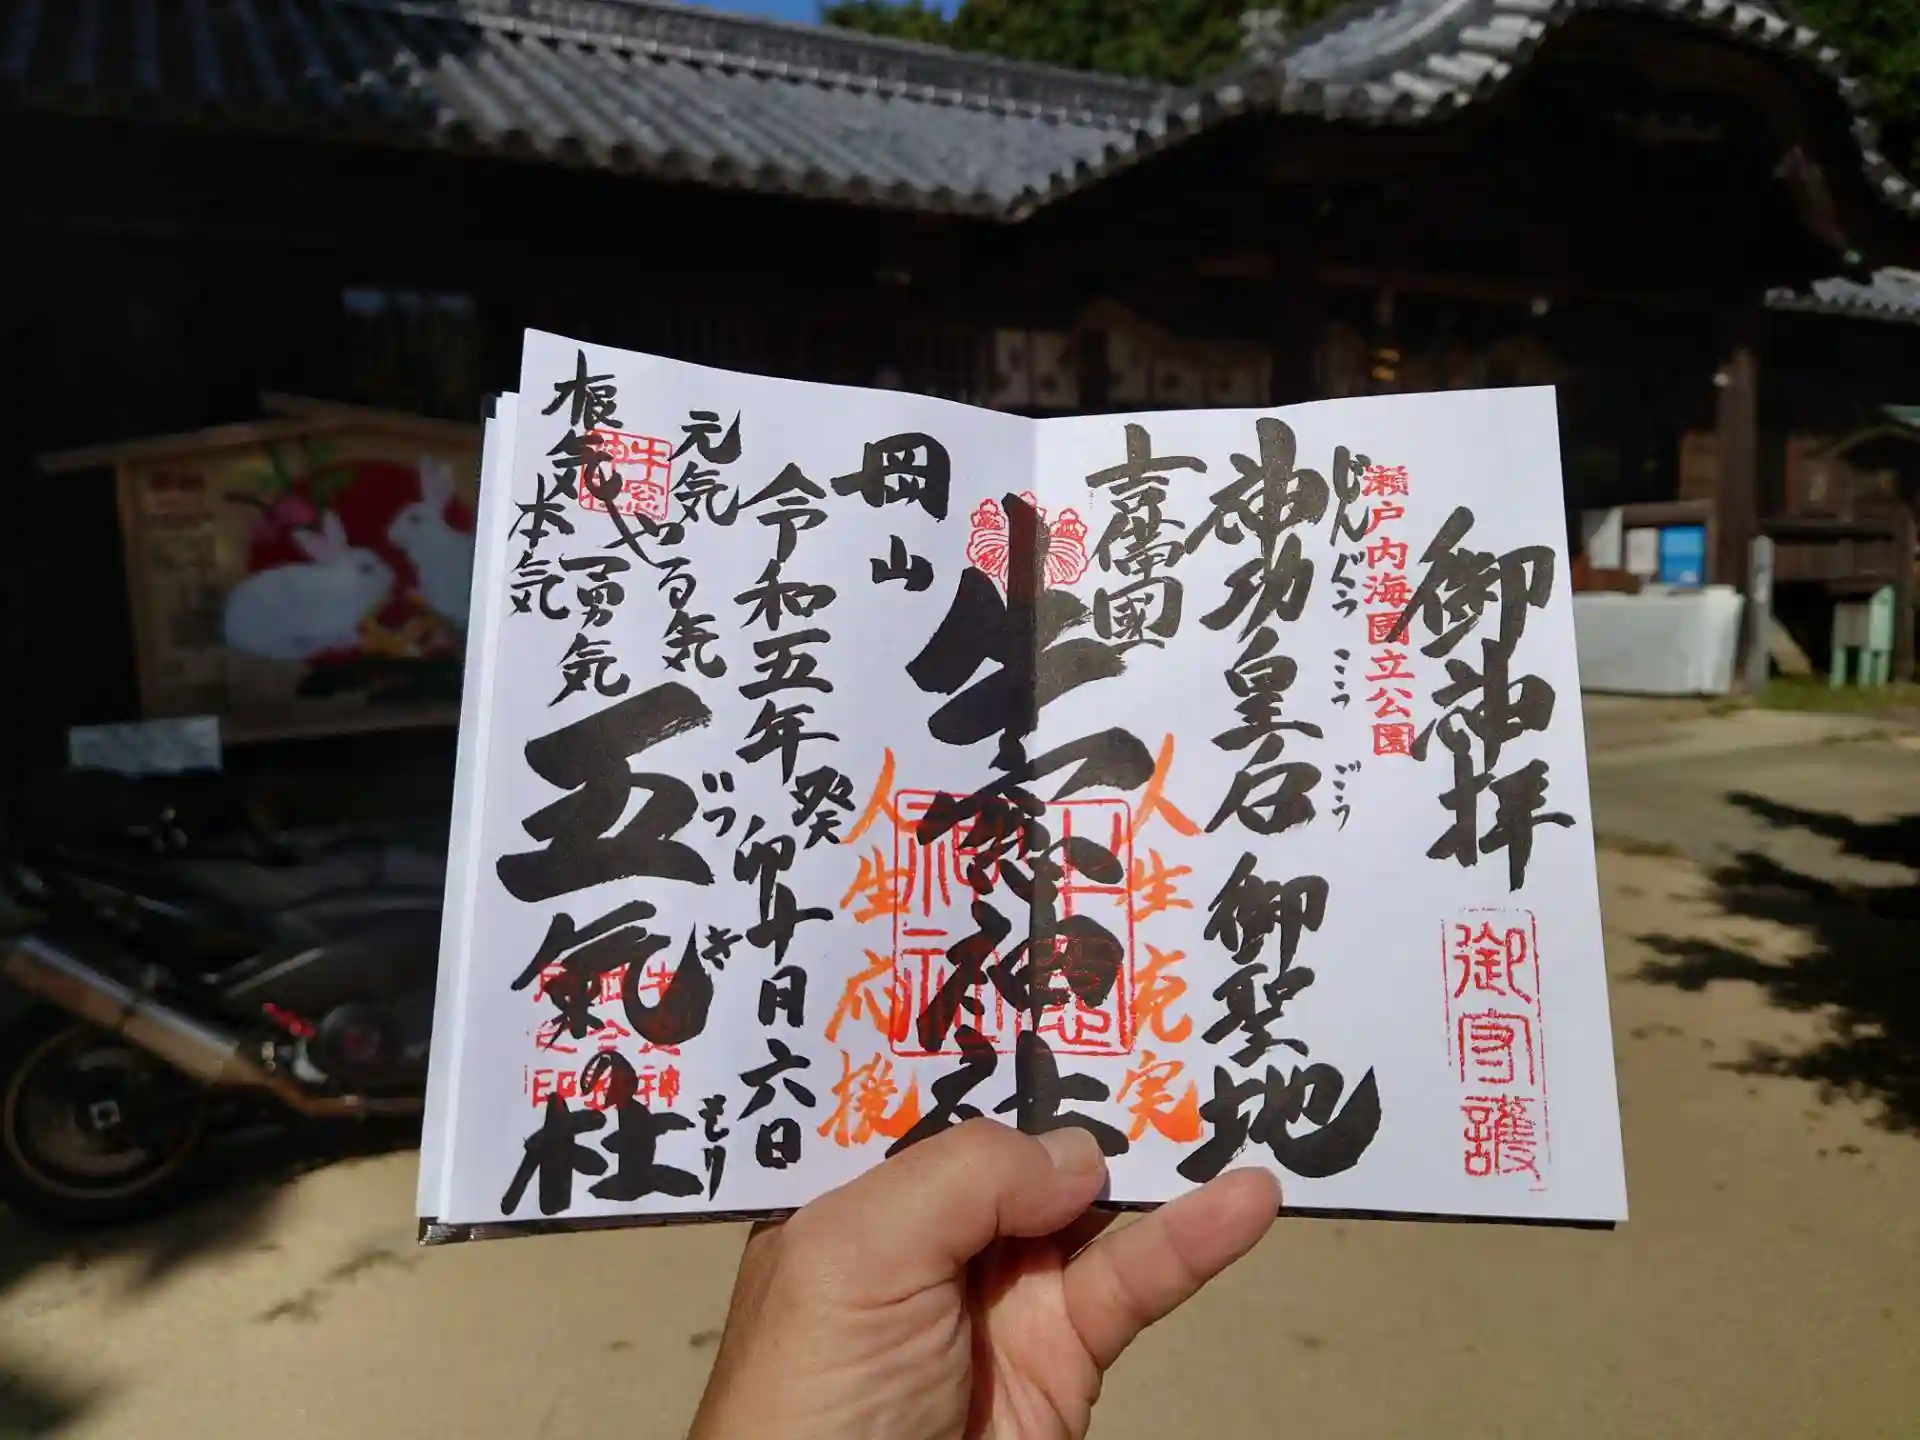 御神拝
御守護
瀬戸内海國立公園
じんぐう こうごう
神功皇后 御聖地
吉備國
人生充実
牛窓神社
岡山
人生応援
令和五年 癸卯 十月六日
元気 やる気
根気 勇気
本気
牛窓
いつき もり
五氣の杜